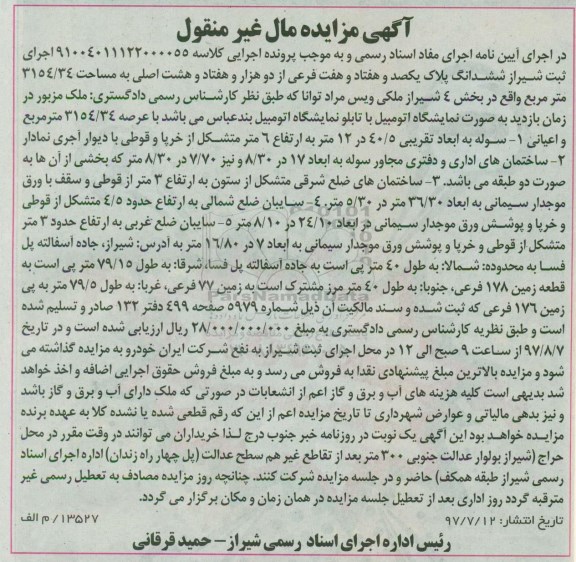 آگهی مزایده مال غیر منقول
در اجرای آیین نامه اجرای مفاد اسناد رسمی و به موجب پرونده اجرایی کلاسه ۹۱۰۰۴۰۰۱۱۱۲۲۰۰۰۰۵۵ اجرای
ثبت شیراز ششدانگ پلاک یکصد و هفتاد و هفت فرعی از دو هزار و هفتاد و هشت اصلی به مساحت ۳۱۵۴/۳۴
متر مربع واقع در بخش ۴ شیراز ملکی ویس مراد توانا که طبق نظر کارشناس رسمی دادگستری: ملک مزبور در
زمان بازدید به صورت نمایشگاه اتومبیل با تابلو نمایشگاه اتومبیل بندعباس می باشد با عرصه ۳۱۵۴/۳۴ مترمربع
و اعیانی ۱- سوله به ابعاد تقریبی ۴۰/۵ در ۱۲ متر به ارتفاع ۶ متر متشکل از خرپا و قوطی با دیوار آجری نمادار
۲- ساختمان های اداری و دفتری مجاور سوله به ابعاد ۱۷ در ۸/۳۰ و نیز ۷/۷۰ در ۸/۳۰ متر که بخشی از آن ها به
صورت دو طبقه می باشد. ۳- ساختمان های ضلع شرقی متشکل از ستون به ارتفاع ۳ متر از قوطی و سقف با ورق
موجدار سیمانی به ابعاد ۳۶/۳۰ متر در ۵/۳۰ متر. ۴- سایبان ضلع شمالی به ارتفاع حدود ۴/۵ متشکل از قوطی
و خرپا و پوشش ورق موجدار سیمانی در ابعاد ۲۴/۱۰ در ۸/۱۰ متر ۵- سایبان ضلع غربی به ارتفاع حدود ۳ متر
متشکل از قوطی و خرپا و پوشش ورق موجدار سیمانی به ابعاد ۷ در ۱۶/۸۰ متر به آدرس: شیراز، جاده آسفالته پل
فسا به محدوده: شمالا: به طول ۴۰ متر پی است به جاده آسفالته پل فسا، شرقا: به طول ۷۹/۱۵ متر پی است به
قطعه زمین ۱۷۸ فرعی، جنوبا: به طول ۴۰ متر مرز مشترک است به زمین ۷۷ فرعی، غربا: به طول ۷۹/۵ متر به پی
زمین ۱۷۶ فرعی که ثبت شده و سند مالکیت آن ذیل شماره ۵۹۷۹ صفحه ۴۹۹ دفتر ۱۳۲ صادر و تسلیم شده
است و طبق نظریه کارشناس رسمی دادگستری به مبلغ ۲۸/۰۰۰/۰۰۰/۰۰۰ ریال ارزیابی شده است و در تاریخ
۹۷/۸/۷ از ساعت ۹ صبح الی ۱۲ در محل اجرای ثبت شیراز به نفع شرکت ایران خودرو به مزایده گذاشته می
شود و مزایده بالاترین مبلغ پیشنهادی نقدا به فروش می رسد و به مبلغ فروش حقوق اجرایی اضافه و اخذ خواهد
شد بدیهی است کلیه هزینه های آب و برق و گاز اعم از انشعابات در صورتی که ملک دارای آب و برق و گاز باشد
و نیز بدهی مالیاتی و عوارض شهرداری تا تاریخ مزایده اعم از این که رقم قطعی شده یا نشده کلا به عهده برنده
مزایده خواهد بود این آگهی یک نوبت در روزنامه خبر جنوب درج لذا خریداران می توانند در وقت مقرر در محل
حراج (شیراز بولوار عدالت جنوبی ۳۰۰ متر بعد از تقاطع غیر هم سطح عدالت (پل چهار راه زندان) اداره اجرای اسناد
رسمی شیراز طبقه همکف) حاضر و در جلسه مزایده شرکت کنند. چنانچه روز مزایده مصادف به تعطیل رسمی غیر
مترقبه گردد روز اداری بعد از تعطیل جلسه مزایده در همان زمان و مکان برگزار می گردد.
تاریخ انتشار: ۹۷/۷/۱۲
۱۳۵۲۷/ م الف
رئیس اداره اجرای اسناد رسمی شیراز – حمید قرقانی
ParsNamadData